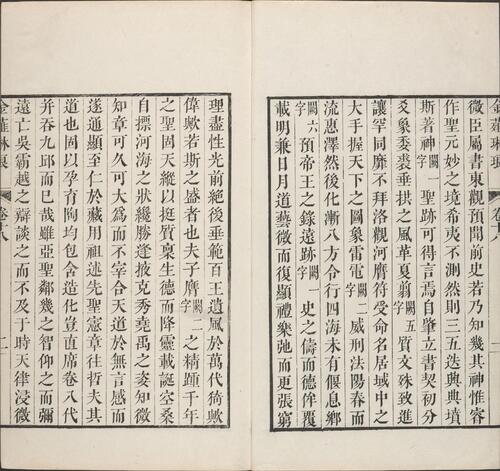 微臣屬書東觀預聞前史若乃知幾其神惟睿
作聖元妙之境希夷不測然則三五迭興典墳
斯著神闕一字聖跡可得言焉自肇立書契初分
爻象委裘垂拱之風革夏翦闕五字質文殊致進
讓罕同靡不拜洛觀河膺符受命名居域中之
大手握天下之圖象雷電闕一字威刑法陽春而
流惠澤然後化漸八方令行四海未有偃息鄉
闕六字預帝王之錄遠跡闕一字史之儔而德侔覆
載明兼日月道藝微而復顯禮樂弛而更張窮
理盡性光前絕後垂範百王遺風於萬代猗歟
偉歟若斯之盛者也夫子膺闕二字之精踵千年
之聖固天縱以挺質稟生德而降靈載誕空桑
自摽河海之狀纔勝逢掖克秀堯禹之姿知微
知章可久可大爲而不宰合天道於無言感而
遂通顯至仁於藏用祖述先聖憲章往哲夫其
道也固以孕育陶均包含造化豈直席卷八代
并吞九邱而已哉雖亞聖鄰幾之智仰之而彌
遠亡吳霸越之辯談之而不及于時天律浸微
金薤琳琅
卷十八
二